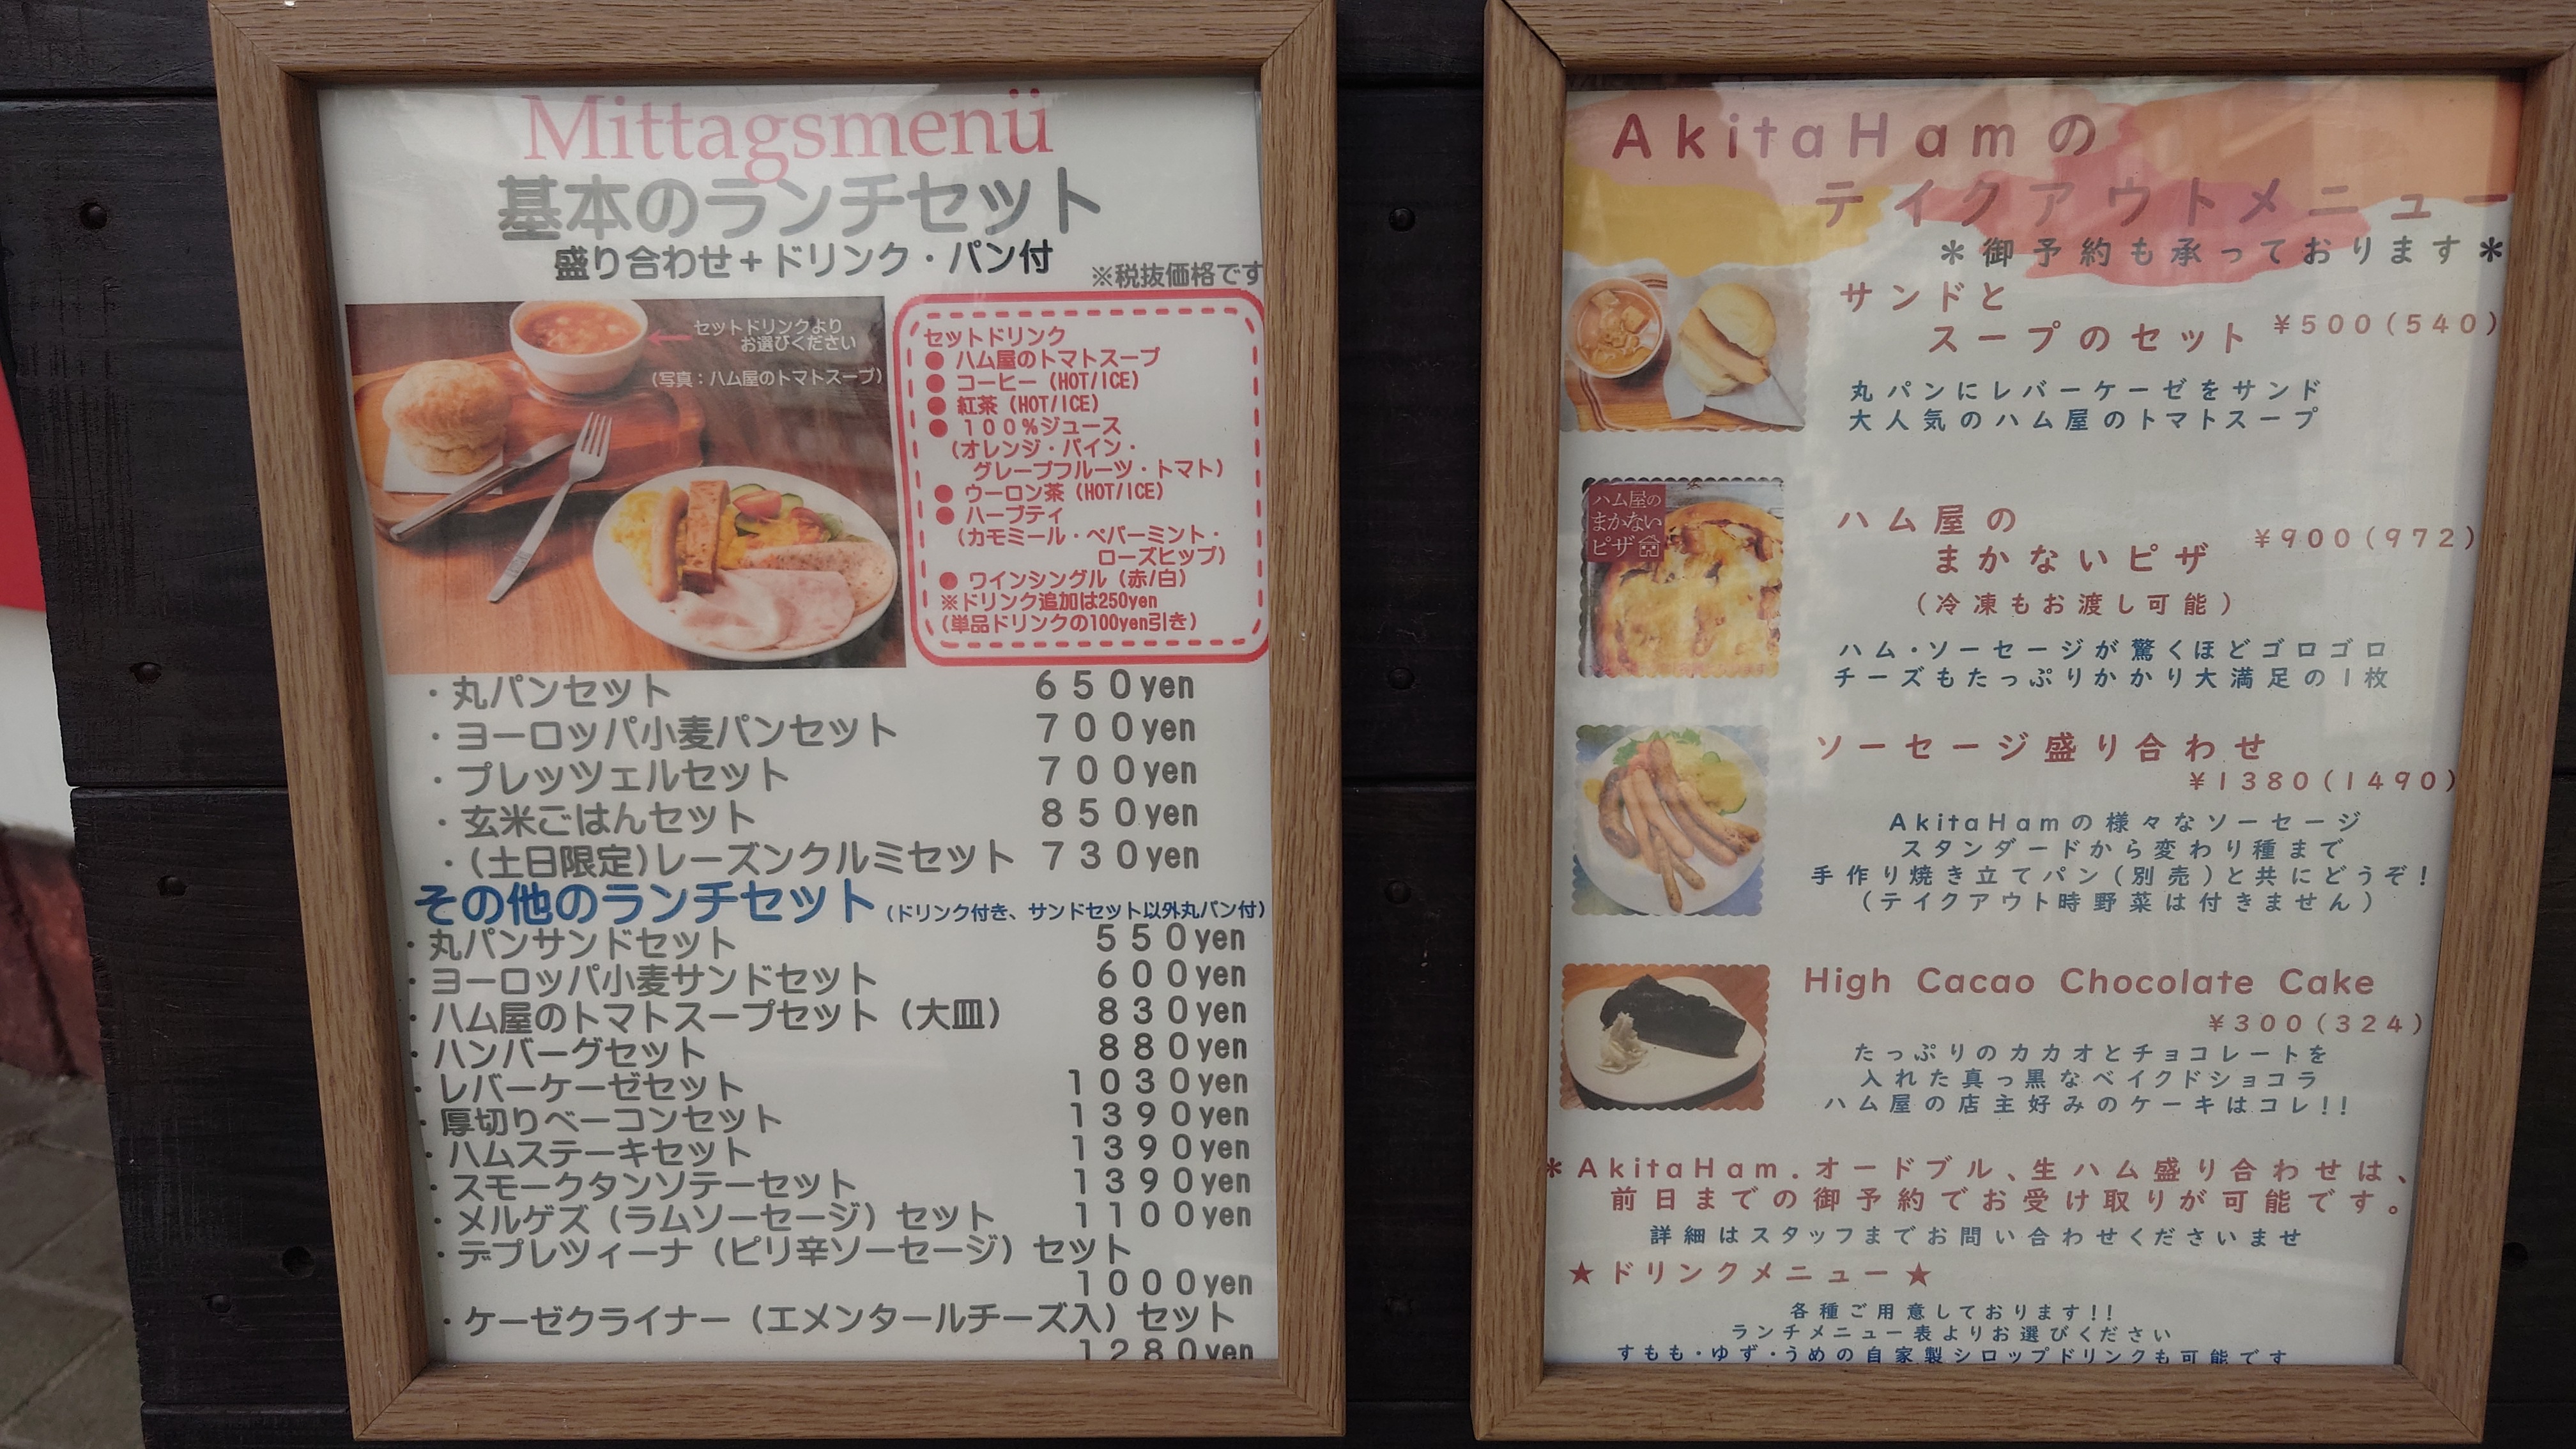 Mittagsmenü
基本のランチセット
盛り合わせ+ドリンク・パン付
※税抜価格です
セットドリンクより
お選びください
(写真:ハム屋のトマトスープ)
セットドリンク
● ハム屋のトマトスープ
● コーヒー(HOT/ICE)
● 紅茶(HOT/ICE)
● 100%ジュース
(オレンジ・パイン・
グレープフルーツ・トマト)
● ウーロン茶(HOT/ICE)
● ハーブティ
(カモミール・ペパーミント・
ローズヒップ)
● ワインシングル(赤/白)
※ドリンク追加は250yen
(単品ドリンクの100yen引き)
・丸パンセット 650yen
・ヨーロッパ小麦パンセット 700yen
・プレッツェルセット 700yen
・玄米ごはんセット 850yen
・(土日限定)レーズンクルミセット 730yen
その他のランチセット(ドリンク付き、サンドセット以外丸パン付)
・丸パンサンドセット 550yen
・ヨーロッパ小麦サンドセット 600yen
・ハム屋のトマトスープセット(大皿) 830yen
・ハンバーグセット 880yen
・レバーケーゼセット 1030yen
・厚切りベーコンセット 1390yen
・ハムステーキセット 1390yen
・スモークタンソテーセット 1390yen
・メルゲズ(ラムソーセージ)セット 1100yen
・デブレツィーナ(ピリ辛ソーセージ)セット
1000yen
・ケーゼクライナー(エメンタールチーズ入)セット
1280yen
AkitaHamの
テイクアウトメニュー
*御予約も承っております*
サンドと
スープのセット ¥500(540)
丸パンにレバーケーゼをサンド
大人気のハム屋のトマトスープ
ハム屋の
まかない
ピザ
ハム屋の
まかないピザ ¥900(972)
(冷凍もお渡し可能)
ハム・ソーセージが驚くほどゴロゴロ
チーズもたっぷりかかり大満足の1枚
ソーセージ盛り合わせ
¥1380(1490)
AkitaHamの様々なソーセージ
スタンダードから変わり種まで
手作り焼き立てパン(別売)と共にどうぞ!
(テイクアウト時野菜は付きません)
High Cacao Chocolate Cake
¥300(324)
たっぷりのカカオとチョコレートを
入れた真っ黒なベイクドショコラ
ハム屋の店主好みのケーキはコレ!!
*AkitaHam.オードブル、生ハム盛り合わせは、
前日までの御予約でお受け取りが可能です。
詳細はスタッフまでお問い合わせくださいませ
★ドリンクメニュー★
各種ご用意しております!!
ランチメニュー表よりお選びください
すもも・ゆず・うめの自家製シロップドリンクも可能です